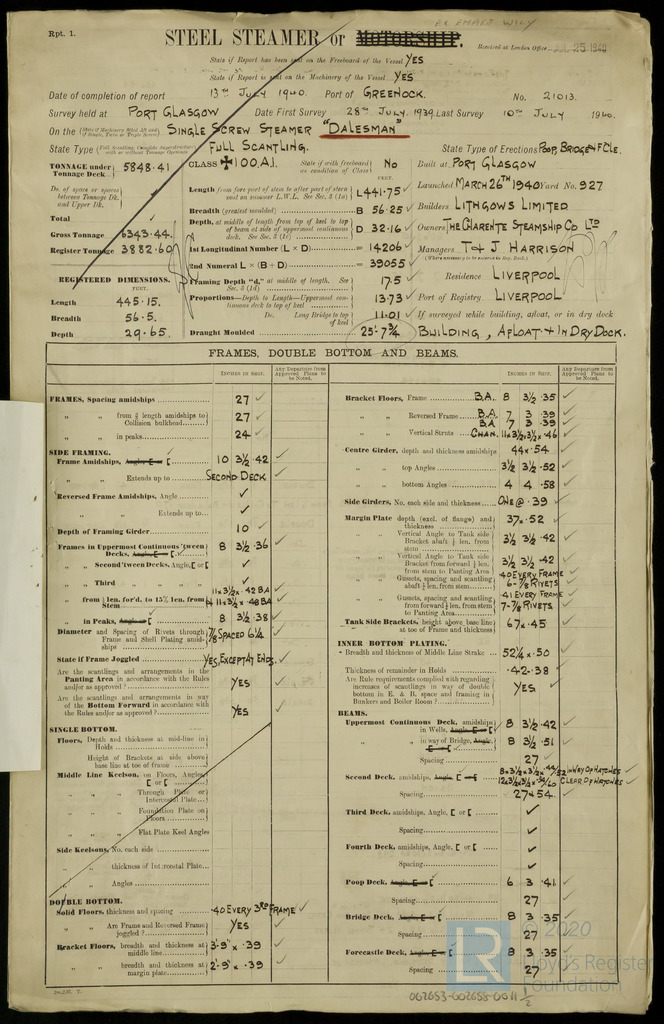 Rpt. 1.
EX EMPIRE WILY
STEEL STEAMER or MOTORSHIP.
Received at London Office JUL 25 1940
State if Report has been sent on the Freeboard of the Vessel YES
State if Report is sent on the Machinery of the Vessel YES
Date of completion of report 13TH JULY 1940. Port of GREENOCK. No. 21013.
Survey held at PORT GLASGOW Date First Survey 28TH JULY. 1939. Last Survey 10TH JULY 1940.
On the SINGLE SCREW STEAMER "DALESMAN"
State Type FULL SCANTLING. State Type of Erections POOP, BRIDGE & F'CLE.
TONNAGE under Tonnage Deck 5848.41
CLASS ✠100.A.1. State if with freeboard as condition of Class No
Built at PORT GLASGOW
Launched MARCH 26TH 1940 Yard No. 927
Builders LITHGOWS LIMITED
Owners THE CHARENTE STEAMSHIP CO LTD
Managers T & J HARRISON
Residence LIVERPOOL
Port of Registry LIVERPOOL
If surveyed while building, afloat, or in dry dock
BUILDING, AFLOAT & IN DRY DOCK.
Do. of space or spaces between Tonnage Dk. and Upper Dk.
Total
Gross Tonnage 6343.44
Register Tonnage 3882.60
REGISTERED DIMENSIONS.
FEET.
Length 445.15.
Breadth 56.5.
Depth 29.65.
FEET.
Length from fore part of stem to after part of stern post on summer L.W.L. See Sec. 3 (1a) L 441.75
Breadth (greatest moulded) B 56.25
Depth, at middle of length from top of keel to top of beam at side of uppermost continuous deck. See Sec. 3 (1c) D 32.16
1st Longitudinal Number (L × D) = 14206
2nd Numeral L × (B + D) = 39055
Framing Depth "d," at middle of length. See Sec. 3 (1d) 17.5
Proportions—Depth to Length—Uppermost continuous deck to top of keel 13.73
Do. Long Bridge to top of keel 11.01
Draught Moulded 25'-7¾
FRAMES, DOUBLE BOTTOM AND BEAMS.
INCHES IN SHIP. Any Departure from Approved Plans to be Noted.
FRAMES, Spacing amidships 27 ✓
" " from ⅗ length amidships to Collision bulkhead 27 ✓
" " in peaks 24 ✓
SIDE FRAMING.
Frame Amidships, Angle E or [ 10 3½ .42 ✓
" " Extends up to SECOND DECK ✓
Reversed Frame Amidships, Angle ✓
" " Extends up to ✓
Depth of Framing Girder 10 ✓
Frames in Uppermost Continuous 'tween Decks, Angle, E or [ 8 3½ .36 ✓
" " Second 'tween Decks, Angle, [ or [ ✓
" " Third " " " ✓
" " from ⅕ len. for'd. to 15% len. from Stem 11×3½×.42 BA
11×3½×.48 BA
" " in Peaks, Angle or [ 8 3½ .38 ✓
Diameter and Spacing of Rivets through Frame and Shell Plating amidships ⅞ SPACED 6¼ ✓
State if Frame Joggled YES, EXCEPT AT ENDS. ✓
Are the scantlings and arrangements in the Panting Area in accordance with the Rules and/or as approved? YES ✓
Are the scantlings and arrangements in way of the Bottom Forward in accordance with the Rules and/or as approved? YES ✓
SINGLE BOTTOM.
Floors, Depth and thickness at mid-line in Holds
Height of Brackets at side above base line at toe of frame
Middle Line Keelson, on Floors, Angles, [ or [
" " Through Plate or Intercostal Plate
" " Foundation Plate on Floors
" " Flat Plate Keel Angles
Side Keelsons, No. each side
" " thickness of Intercostal Plate
" " Angles
DOUBLE BOTTOM.
Solid Floors, thickness and spacing .40 EVERY 3RD FRAME ✓
" " Are Frame and Reversed Frame joggled? YES ✓
Bracket Floors, breadth and thickness at middle line 3'-9" × .39 ✓
" " breadth and thickness at margin plate 2'-9" × .39 ✓
INCHES IN SHIP. Any Departure from Approved Plans to be Noted.
Bracket Floors, Frame B.A. 8 3 .35 ✓
" " Reversed Frame B.A. 7 3 .39 ✓
BA 7 3 .39
" " Vertical Struts CHAN. 11×3½×3½×.46 ✓
Centre Girder, depth and thickness amidships 44×.54 ✓
" " top Angles 3½ 3½ .52 ✓
" " bottom Angles 4 4 .58 ✓
Side Girders, No. each side and thickness ONE @ .39 ✓
Margin Plate depth (excl. of flange) and thickness 37×.52 ✓
" " Vertical Angle to Tank side Bracket abaft ⅕ len. from stem 3½ 3½ .42 ✓
" " Vertical Angle to Tank side Bracket from forward ⅕ len. from stem to Panting Area 3½ 3½ .42 ✓
" " Gussets, spacing and scantling abaft ⅕ len. from stem .40 EVERY FRAME
6-⅞ RIVETS ✓
" " Gussets, spacing and scantling from forward ⅕ len. from stem to Panting Area .41 EVERY FRAME
7-⅞ RIVETS. ✓
Tank Side Brackets, height above base line at toe of Frame and thickness 67×.45 ✓
INNER BOTTOM PLATING.
Breadth and thickness of Middle Line Strake 52¼×.50 ✓
Thickness of remainder in Holds .42-.38 ✓
Are Rule requirements complied with regarding increases of scantlings in way of double bottom in E. & B. space and framing in Bunkers and Boiler Room? YES. ✓
BEAMS.
Uppermost Continuous Deck, amidships in Wells, Angle, E or [ 8 3½ .42 ✓
" " in way of Bridge, Angle, E or [ 8 3½ .51 ✓
Spacing 27 ✓
Second Deck, amidships, Angle, E or [ 8×3½×3½×.44/.52 IN WAY OF HATCHES ✓
12×3½×3½×.34/.60 CLEAR OF HATCHES ✓
Spacing 27 & 54 ✓
Third Deck, amidships, Angle, [ or [ ✓
Spacing ✓
Fourth Deck, amidships, Angle, [ or [ ✓
Spacing ✓
Poop Deck, Angle, E or [ 6 3 .41 ✓
Spacing 27 ✓
Bridge Deck, Angle, E or [ 8 3 .35 ✓
Spacing 27
Forecastle Deck, Angle, E or [ 8 3 .35
Spacing 27
LR
© 2020
Lloyd's Register
Foundation
002653-002658-0011½